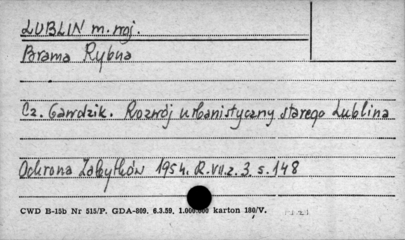 LUBLIN m. woj.
Brama Rybna
Cz. Gawdzik. Rozwój urbanistyczny starego Lublina
Ochrona Zabytków 1954. R. VII. z. 3. s. 148
CWD B-15b Nr 515/P. GDA-809. 6.3.59. 1.000.000 karton 180/V.